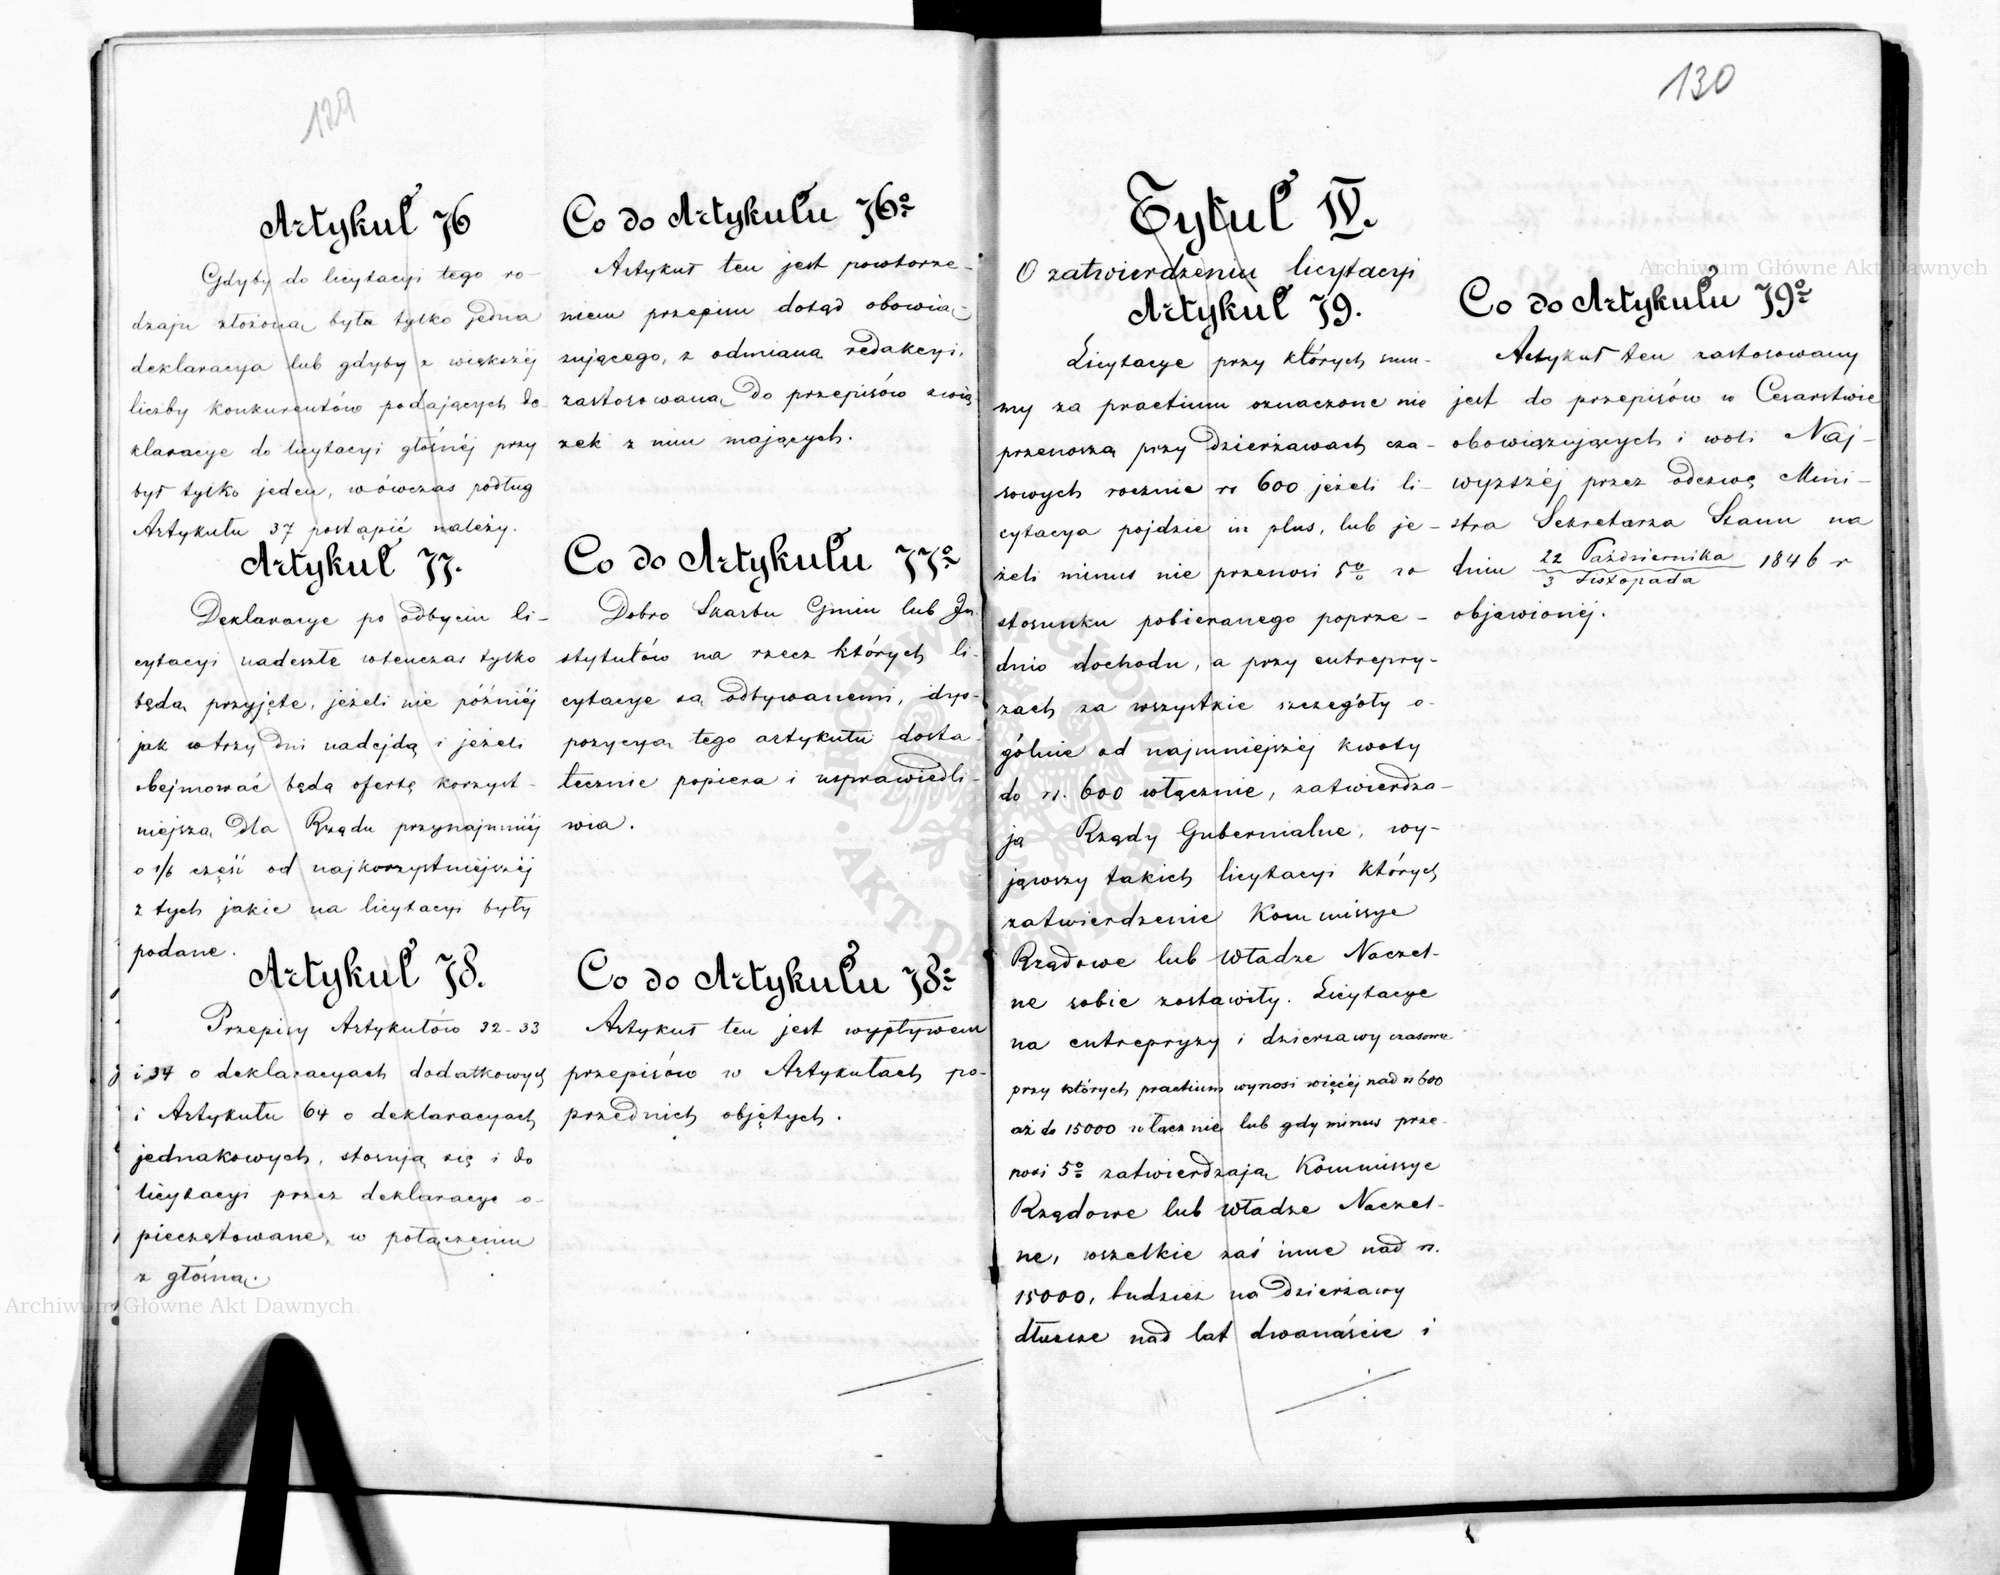 129
Artykuł 76
Gdyby do licytacyi tego ro-
dzaju złożoną była tylko jedna
deklaracya lub gdyby z większéj
liczby konkurentów podających de-
klaracye do licytacyi głośnéj przy
był tylko jeden, wówczas podług
Artykułu 37 postąpić należy.
Artykuł 77.
Deklaracye po odbyciu li-
cytacyi nadeszłe wtenczas tylko
będą przyjęte, jeżeli nie późniéj
jak w trzy dni nadejdą i jeżeli
obejmować będą ofertę korzyst-
niejszą dla Rządu przynajmniéj
o 1/6 część od najkorzystniejszéj
z tych jakie na licytacyi były
podane.
Artykuł 78.
Przepisy Artykułów 32-33
i 34 o deklaracyach dodatkowych
i Artykułu 64 o deklaracyach
jednakowych, stosują się i do
licytacyi przez deklaracye o-
pieczętowane, w połączeniu
z głośną.
Co do Artykułu 76º
Artykuł ten jest powtórze-
niem przepisu dotąd obowią-
zującego, z odmianą redakcyi,
zastosowaną do przepisów zwią
zek z nim mających.
Co do Artykułu 77º
Dobro Skarbu Gmin lub In-
stytutów na rzecz których li-
cytacye są odbywanemi, dys-
pozycyą tego artykułu dosta-
tecznie popiera i usprawiedli-
wia.
Co do Artykułu 78º
Artykuł ten jest wypływem
przepisów w Artykułach po-
przednich objętych.
130
Tytuł IV.
O zatwierdzeniu licytacyi
Artykuł 79.
Licytacye przy których sum-
my za praetium oznaczone nie
przenoszą przy dzierżawach cza-
sowych rocznie rs 600 jeżeli li-
cytacya pojdzie in plus, lub je-
żeli minus nie przenosi 5% w
stosunku pobieranego poprze-
dnio dochodu, a przy entrepry-
zach za wszystkie szczegóły o-
gólnie od najmniejszéj kwoty
do rs. 600 włącznie, zatwierdza-
ją Rządy Gubernialne, wy-
jąwszy takich licytacyi których
zatwierdzenie Kommissye
Rządowe lub Władze Naczel-
ne sobie zostawiły. Licytacye
na entrepryzy i dzierżawy czasowe
przy których praetium wynosi więcéj nad rs 600
aż do 15000 włącznie lub gdy minus prze-
nosi 5% zatwierdzają Kommissye
Rządowe lub Władze Naczel-
ne, wszelkie zaś inne nad rs.
15000, tudzież na dzierżawy
dłuższe nad lat dwanaście i
Co do Artykułu 79º
Artykuł ten zastosowany
jest do przepisów w Cesarstwie
obowiązujących i woli Naj-
wyższéj przez odezwę Mini-
stra Sekretarza Stanu na
dniu 22 Października / 3 Listopada 1846 r
objawionéj.
Archiwum Główne Akt Dawnych
Archiwum Główne Akt Dawnych
ARCHIWUM GŁÓWNE · AKT DAWNYCH ·